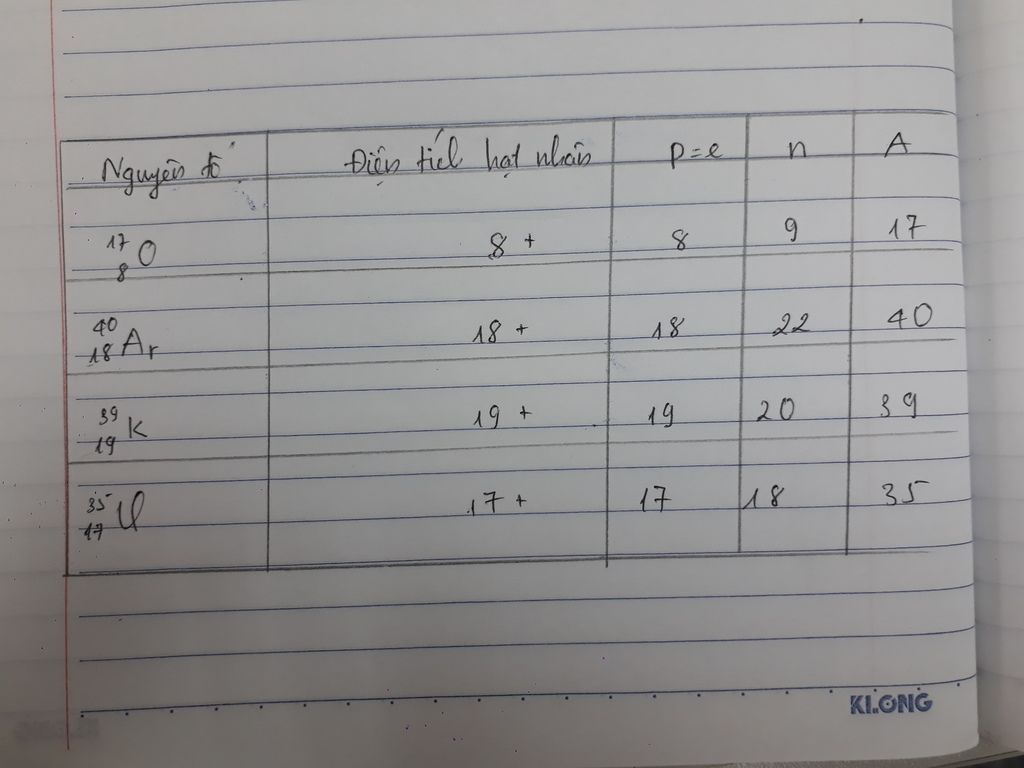 Nguyên tố Điện tích hạt nhân p=e n A
¹⁷₈O 8+ 8 9 17
⁴⁰₁₈Ar 18+ 18 22 40
³⁹₁₉K 19+ 19 20 39
³⁵₁₇Cl 17+ 17 18 35
KLONG